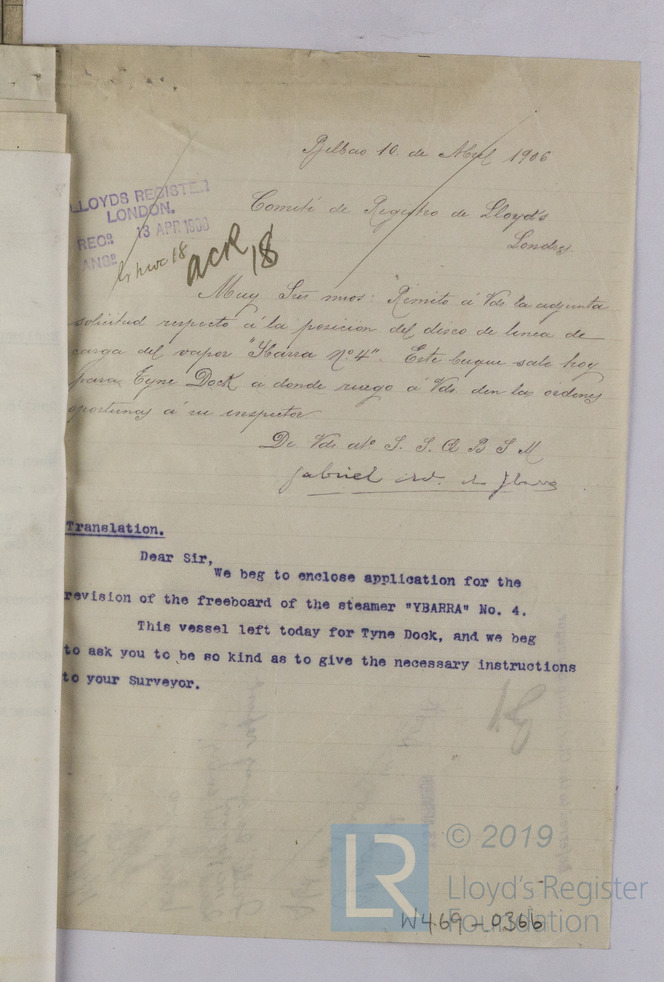 Bilbao 10 de Abril 1906
LLOYDS REGISTER
LONDON.
REC^D 13 APR 1906
ANS^D
18
ACR
18
Comité de Registro de Lloyd's
Londres
Muy Sres mios: Remito á Vds la adjunta
solicitud respecto á la posicion del disco de linea de
carga del vapor "Ybarra Nº 4". Este buque sale hoy
para Tyne Dock a donde ruego á Vds. den las ordenes
oportunas á su inspector
De Vds atº S. S. Q B S M
Gabriel de Ybarra
Translation.
Dear Sir,
We beg to enclose application for the
revision of the freeboard of the steamer "YBARRA" No. 4.
This vessel left today for Tyne Dock, and we beg
to ask you to be so kind as to give the necessary instructions
to your Surveyor.
LR
© 2019
Lloyd's Register
Foundation
W469-0366